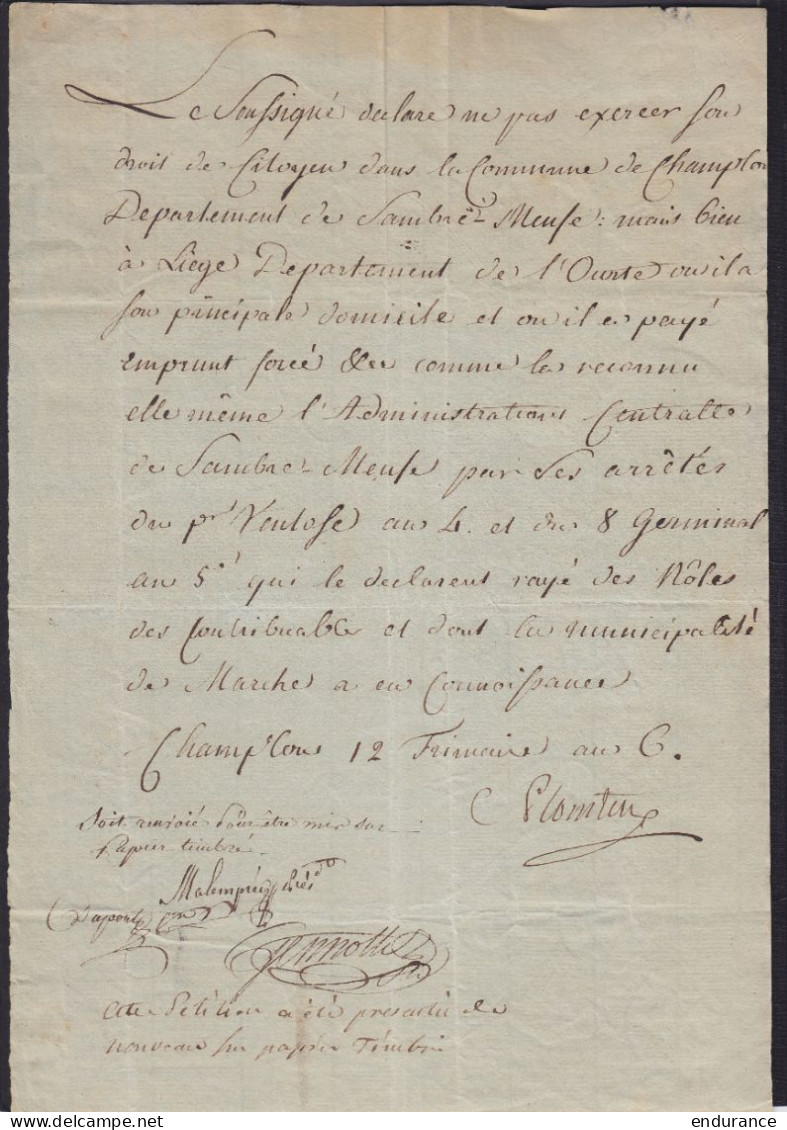 Le Soussigné declare ne pas exercer son
droit de Citoyen dans la Commune de Champlon
Departement de Sambre & Meuse : mais bien
à Liege Departement de l'Ourte ou il a
son principale domicile et ou il a payé
emprunt forcé &c comme l'a reconnu
elle même l'Administration Centralle
de Sambre & Meuse par ses arrêtés
du pr Ventose an 4. et du 8 Germinal
an 5. qui le declarent rayé des Rôles
des Contribuables et dont la municipalité
de Marche a eu Connoissance
Champlon 12 Frimaire an 6.
Soit renvoié pour être mis sur
papier timbré
Cette Petition a été presentée de
nouveau sur papier Timbré
endurance